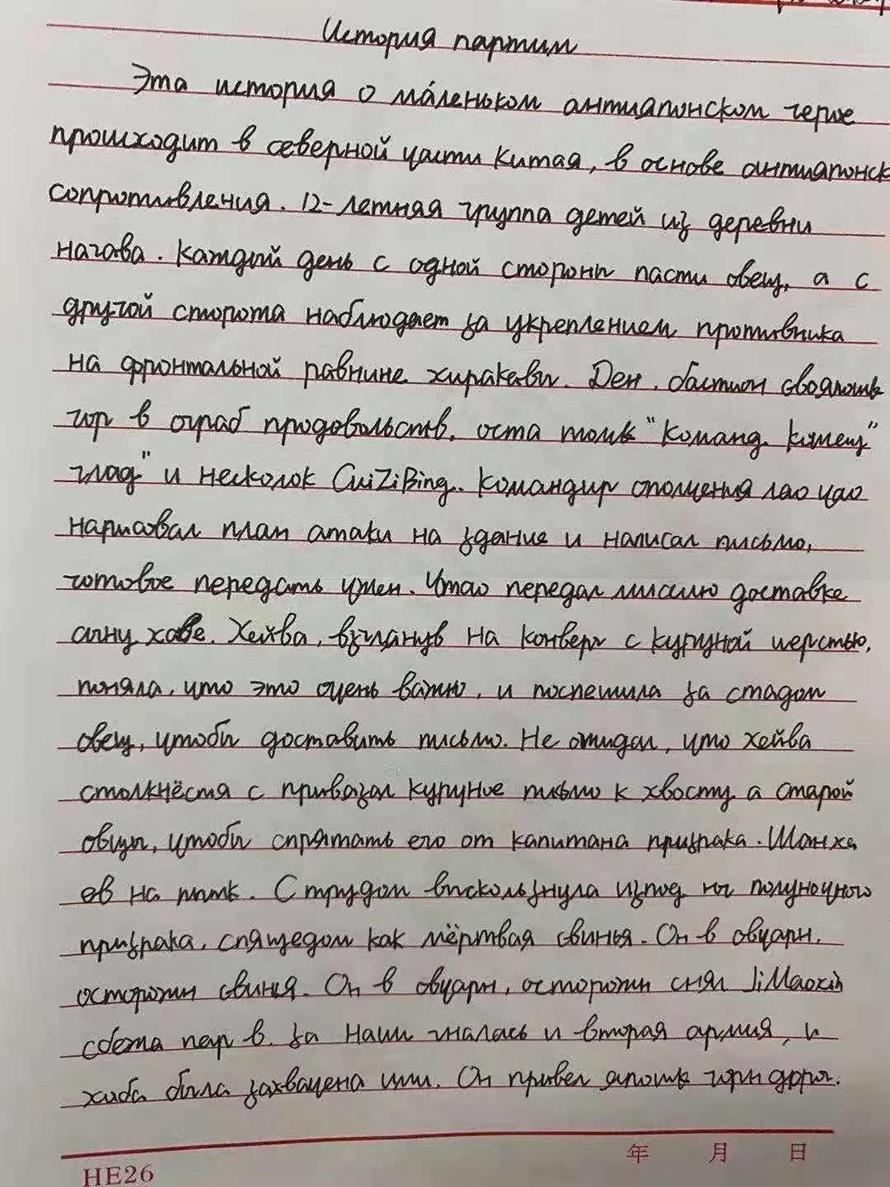 История партии
Эта история о маленьком антияпонском герое
происходит в северной части Китая, в основе антияпонск
сопротивления. 12-летняя группа детей из деревни
нагава. Каждый день с одной стороны пасти овец, а с
другой сторота наблюдает за укреплением противника
на фронтальной равнине хиракави. Ден. бастион
в ограб продовольств, оста "Команд.
глад" и несколок CuiZiBing. Командир ополщения лао цао
нарисовал план атаки на здание и написал письмо,
готовое передать Чтао передал миссию доставке
Хейва, взглянув на конверт с куруной шерстью,
поняла, что это очень важно, и поспешила за стадом
овец, чтобы доставить письмо. Не ожидал, что хейва
столкнёстя с привязал куруное письмо к хвосту а старой
овцы, чтобы спрятать его от капитана призрака.
ов на С трудом выскользнула полуночного
призрака, спящедом как мёртвая свинья. Он в овчарн.
осторожн свинья. Он в овчарн, осторожн снял JiMaoxin
в. за наши гналась и вторая армия, и
была захвачена ими. Он привел
HE26
年 月 日